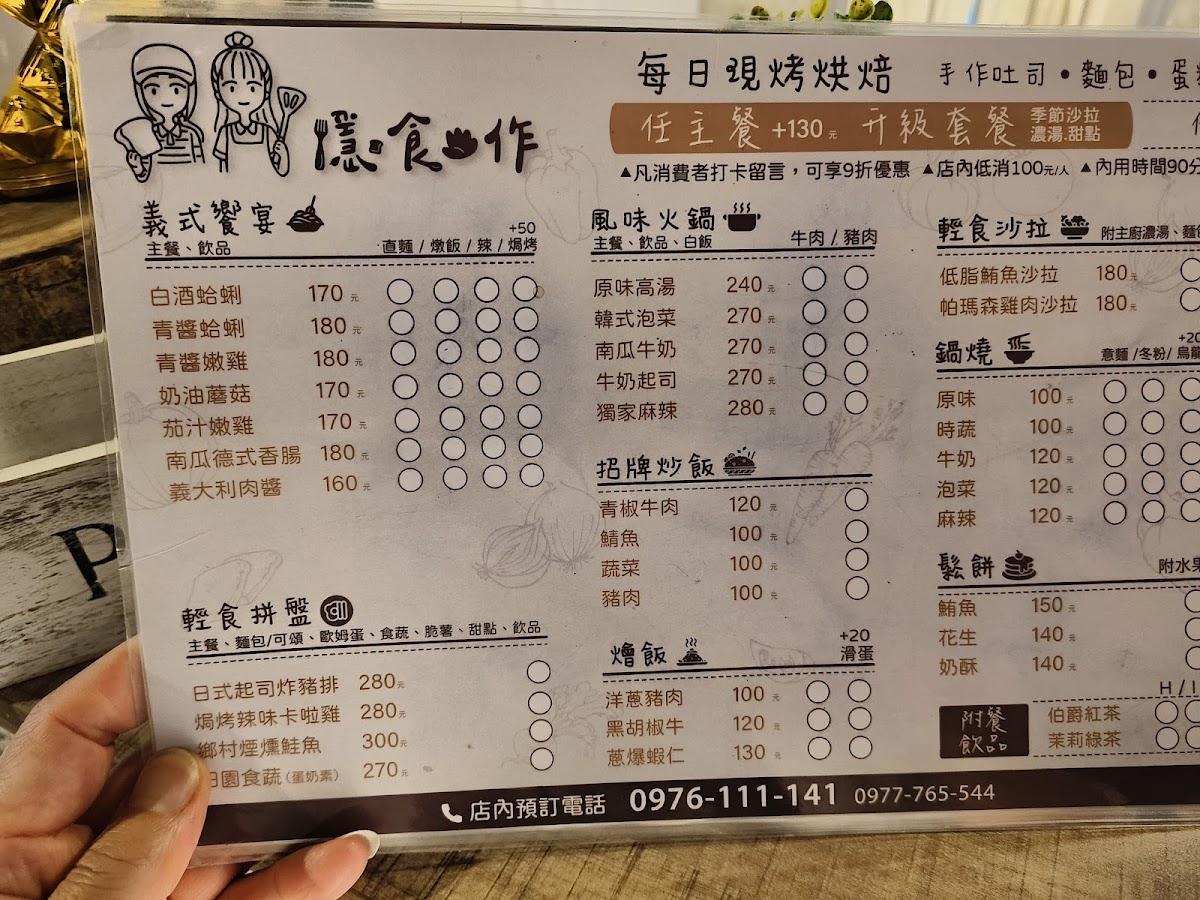 隱·食作
每日現烤烘焙 手作吐司•麵包•蛋
任主餐 +130元 升級套餐 季節沙拉
濃湯.甜點
▲凡消費者打卡留言，可享9折優惠 ▲店內低消100元/人 ▲內用時間90分
義式饗宴
主餐、飲品 直麵 / 燉飯 / 辣 / 焗烤
+50
白酒蛤蜊 170元
青醬蛤蜊 180元
青醬嫩雞 180元
奶油蘑菇 170元
茄汁嫩雞 170元
南瓜德式香腸 180元
義大利肉醬 160元
輕食拼盤
主餐、麵包/可頌、歐姆蛋、食蔬、脆薯、甜點、飲品
日式起司炸豬排 280元
焗烤辣味卡啦雞 280元
鄉村煙燻鮭魚 300元
田園食蔬(蛋奶素) 270元
風味火鍋
主餐、飲品、白飯 牛肉 / 豬肉
原味高湯 240元
韓式泡菜 270元
南瓜牛奶 270元
牛奶起司 270元
獨家麻辣 280元
招牌炒飯
青椒牛肉 120元
鯖魚 100元
蔬菜 100元
豬肉 100元
燴飯 +20
滑蛋
洋蔥豬肉 100元
黑胡椒牛 120元
蔥爆蝦仁 130元
輕食沙拉 附主廚濃湯、麵
低脂鮪魚沙拉 180元
帕瑪森雞肉沙拉 180元
鍋燒 +20
意麵 /冬粉/ 烏龍
原味 100元
時蔬 100元
牛奶 120元
泡菜 120元
麻辣 120元
鬆餅 附水果
鮪魚 150元
花生 140元
奶酥 140元
H / I
附餐
飲品
伯爵紅茶
茉莉綠茶
店內預訂電話 0976-111-141 0977-765-544
P